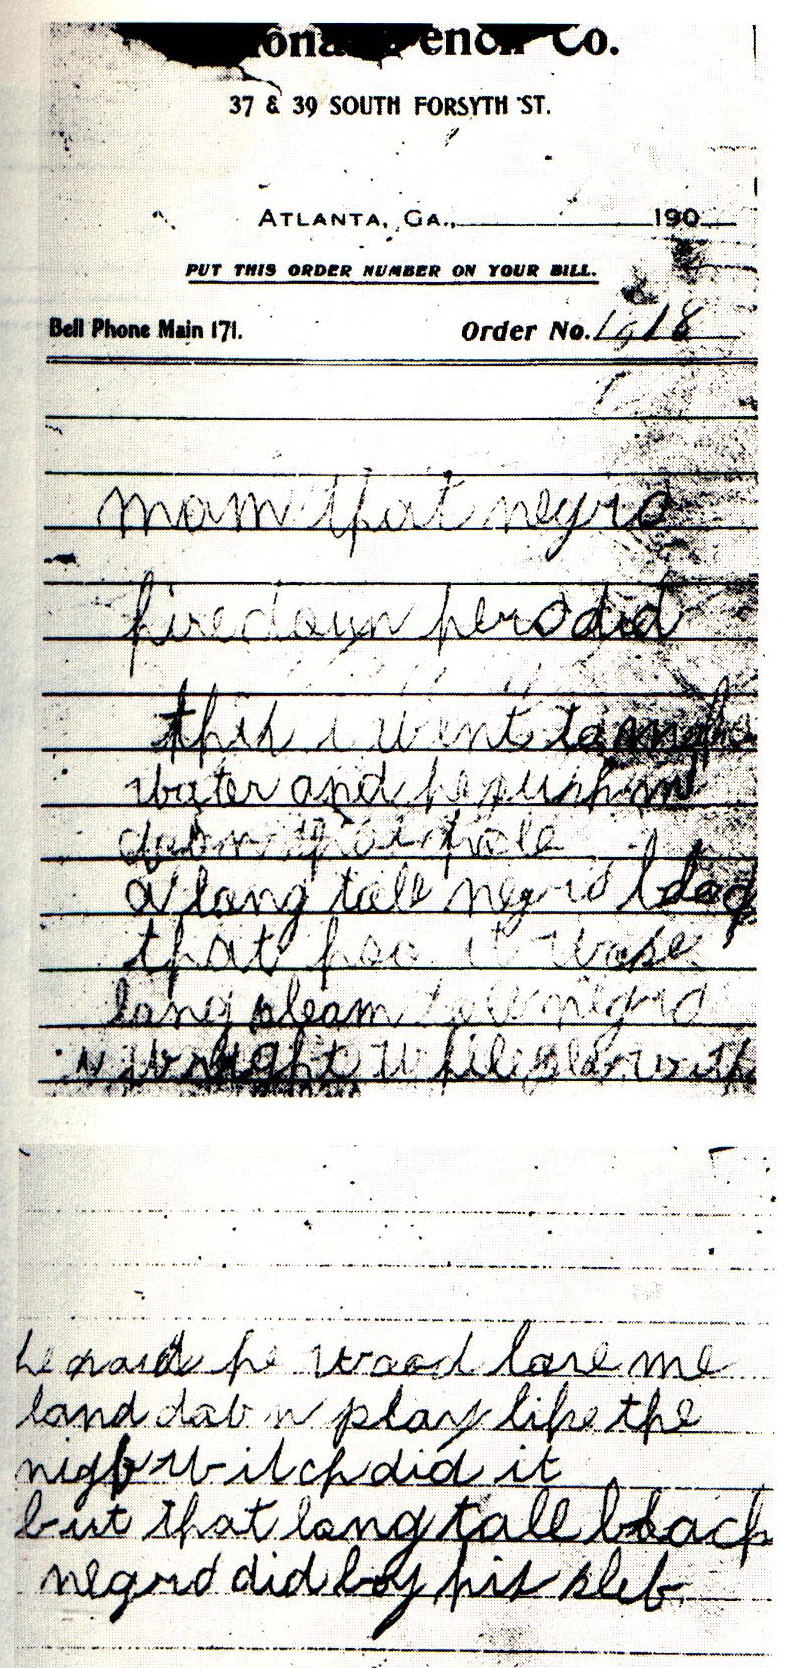 Co.
37 & 39 SOUTH FORSYTH ST.
ATLANTA, GA., 190
PUT THIS ORDER NUMBER ON YOUR BILL.
Bell Phone Main 171. Order No. 1918
mam that negro
hire down here did
this i went to make
water and he push me
down that hole
a long tall negro black
that hoo it wase
long sleam tall negro
i wright while play with
he said he wood love me
land dab n play like the
night witch did it
but that long tall black
negro did boy his slef